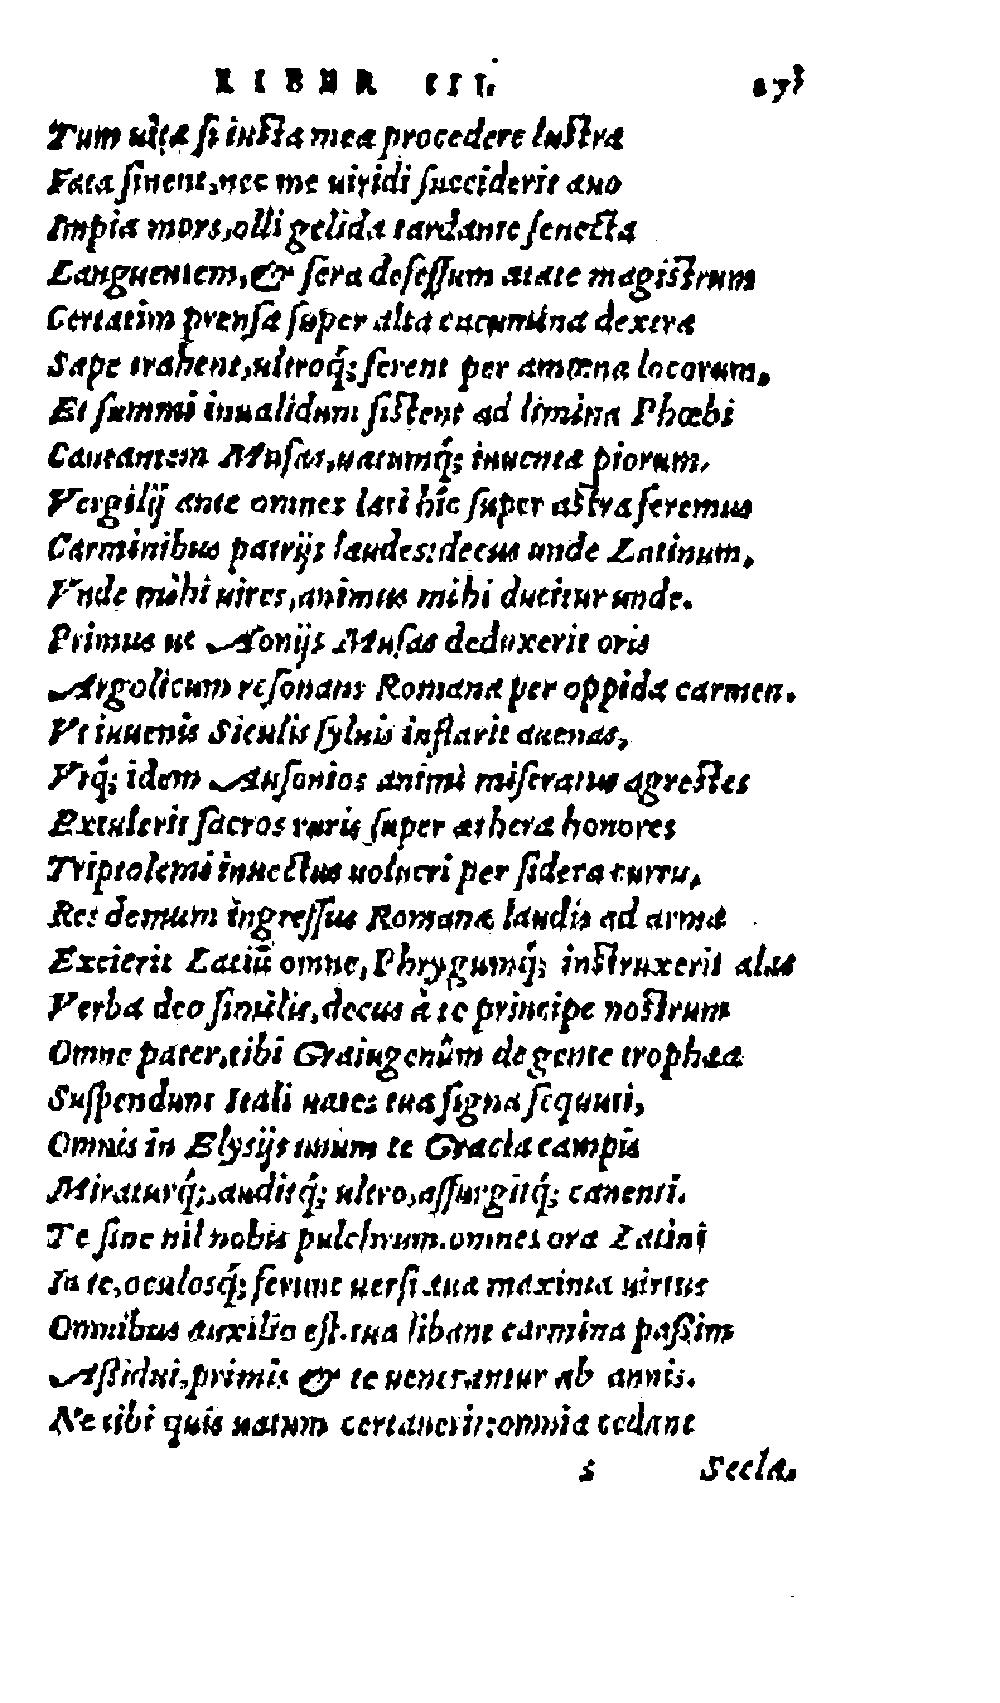 LIBER III. 273
Tum uitæ si iusta meæ procedere lustra
Fata sinent, nec me uiridi succiderit æuo
Impia mors, olli gelida tardante senecta
Languentem, & sera defessum ætate magistrum
Certatim prensa super alta cacumina dextra
Sæpe trahent, ultroq́; ferent per amœna locorum,
Et summi inualidum sistent ad limina Phœbi
Cantantem Musas, uatumq́; inuenta piorum,
Vergilij ante omnes læti hîc super astra feremus
Carminibus patrijs laudes: decus unde Latinum,
Vnde mihi uires, animus mihi ducitur unde.
Primus ut Aonijs Musas deduxerit oris
Argolicum resonans Romana per oppida carmen.
Vt iuuenis Siculis syluis inflarit auenas,
Vtq́; idem Ausonios animi miseratus agrestes
Extulerit sacros ruris super æthera honores
Triptolemi inuectus uolucri per sidera curru,
Res demum ingressus Romanæ laudis ad arma
Excierit Latiũ omne, Phrygumq́; instruxerit alas
Verba deo similis, decus à te principe nostrum
Omne pater, tibi Graiugenûm de gente trophæa
Suspendunt Itali uates tua signa sequuti,
Omnis in Elysijs unum te Græcia campis
Miraturq́;, auditq́; ultro, assurgitq́; canenti.
Te sine nil nobis pulchrum. omnes ora Latini
In te, oculosq́; ferunt uersi. tua maxima uirtus
Omnibus auxilio est. tua libant carmina passim
Assidui, primis & te uenerantur ab annis.
Ne tibi quis uatum certauerit: omnia cedant
s Secla,